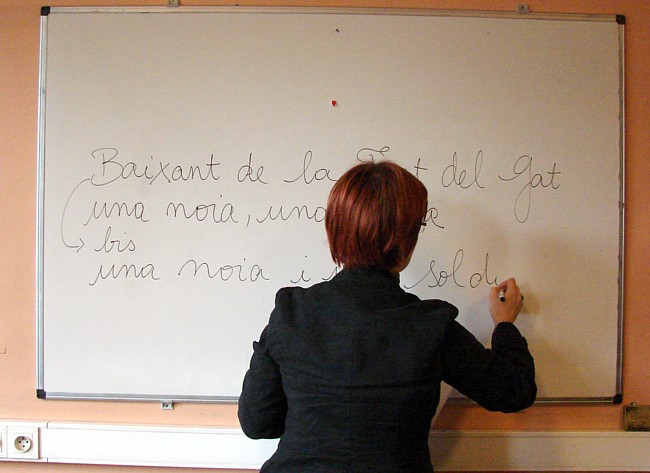 Baixant de la del Gat
una noia, una
bis
una noia i sold